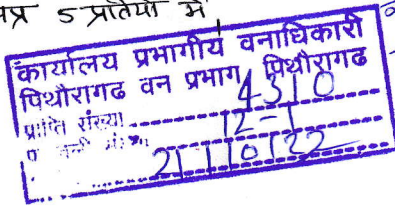 5 प्रतियों में
कार्यालय प्रभागीय वनाधिकारी
पिथौरागढ वन प्रभाग, पिथौरागढ
प्राप्ति संख्या 4310
12-1
21/10/22